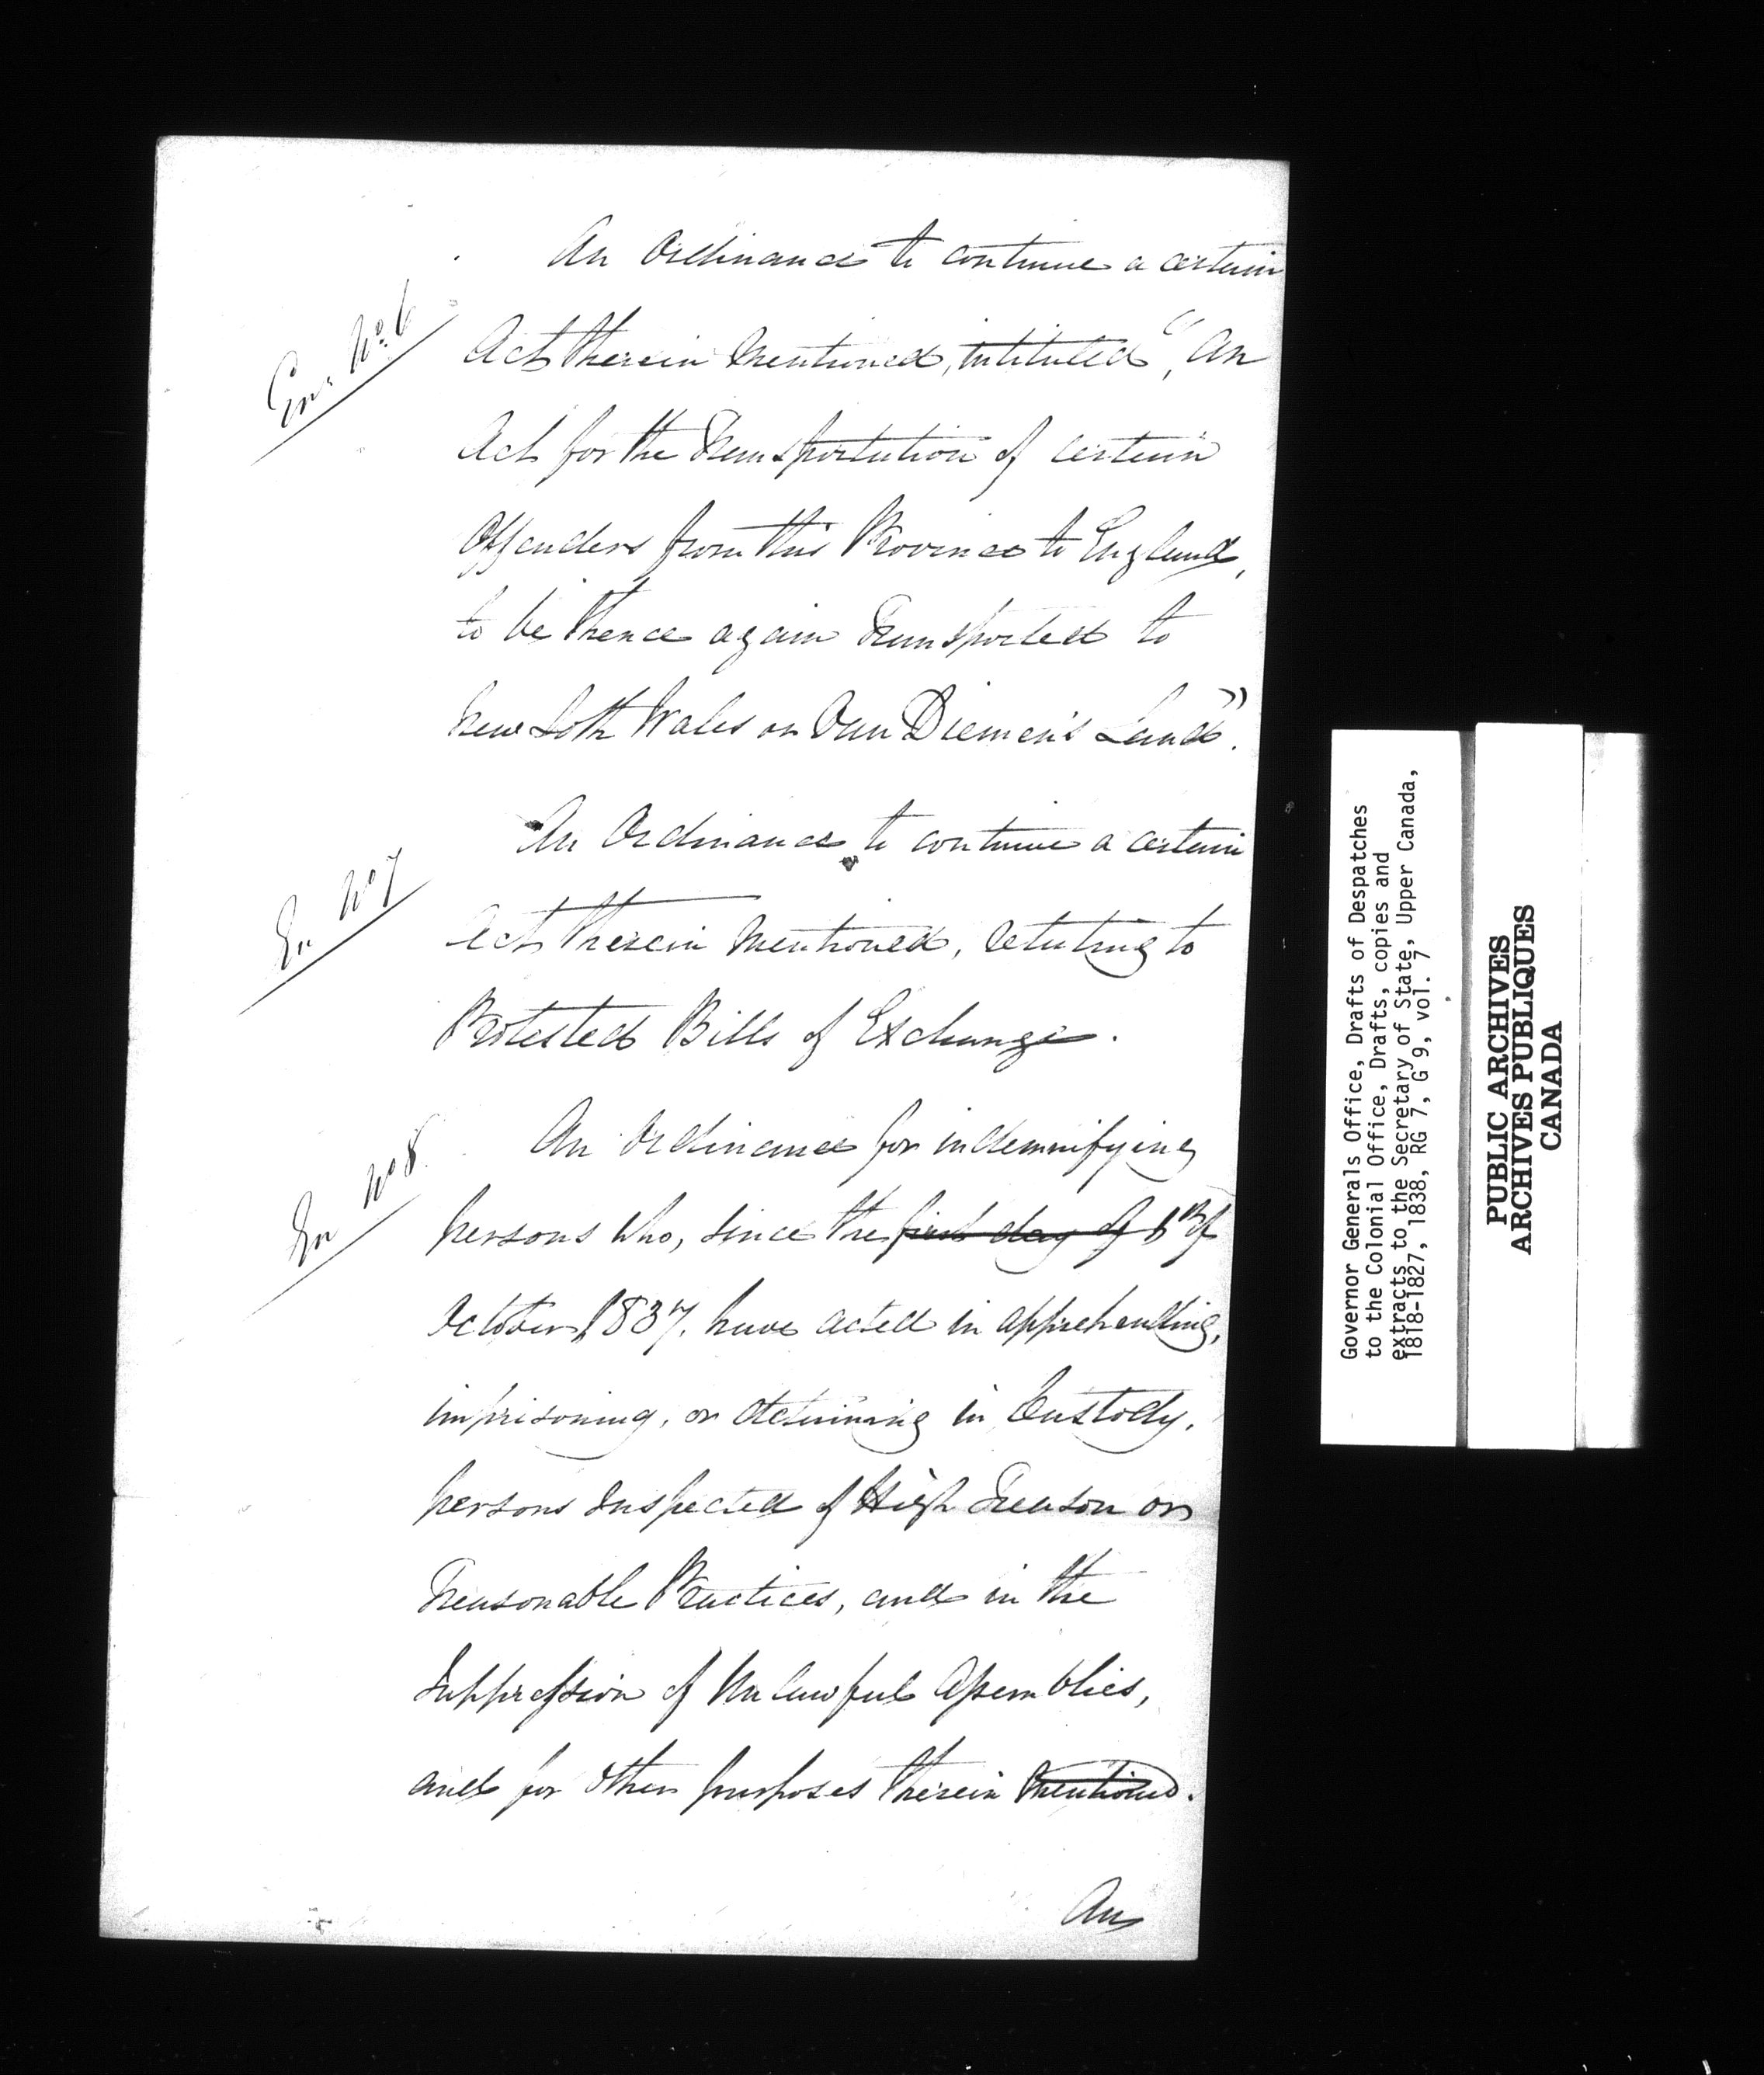 An Ordinance to continue a certain
En. No. 6
Act therein mentioned, intituled, "An
Act for the Transportation of certain
Offenders from this Province to England,
to be thence again Transported to
New Soth Wales or Van Diemen's Land".
An Ordinance to continue a certain
En No 7
Act therein mentioned, relating to
Protested Bills of Exchange.
An Ordinance for indemnifying
En No 8
persons who, since the first day of 1st of
October 1837, have acted in apprehending,
imprisoning, or detaining in Custody,
persons suspected of High Treason or
Treasonable Practices, and in the
Suppression of Unlawful Assemblies,
and for other purposes therein mentioned.
An
Governor Generals Office, Drafts of Despatches
to the Colonial Office, Drafts, copies and
extracts to the Secretary of State, Upper Canada,
1818-1827, 1838, RG 7, G 9, vol. 7
PUBLIC ARCHIVES
ARCHIVES PUBLIQUES
CANADA